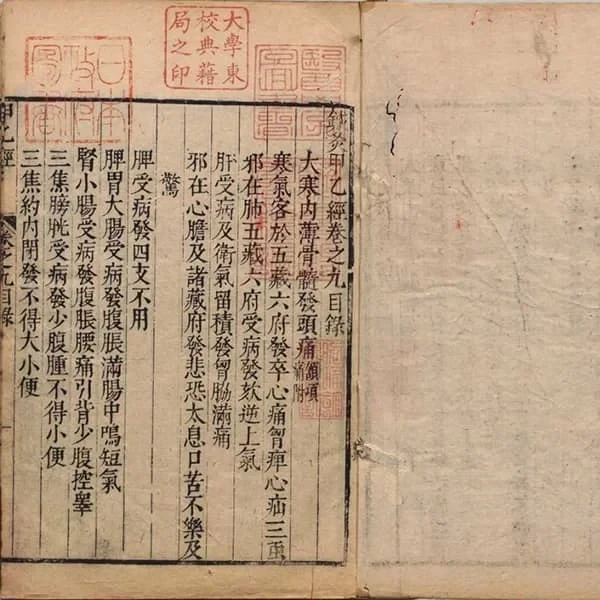 大學東
校典藉
局之印
鍼灸甲乙經卷之九目錄
大寒內薄骨髓發頭痛頷項痛附
寒氣客於五藏六府發卒心痛胷痺心疝三蟲
邪在肺五藏六府受病發欬逆上氣
肝受病及衛氣留積發胷脇滿痛
邪在心膽及諸藏府發悲恐太息口苦不樂及
驚
脾受病發四支不用
脾胃大腸受病發腹脹滿腸中鳴短氣
腎小腸受病發腹脹腰痛引背少腹控睾
三焦膀胱受病發少腹腫不得小便
三焦約內閉發不得大小便
甲乙經
卷之九目錄
一